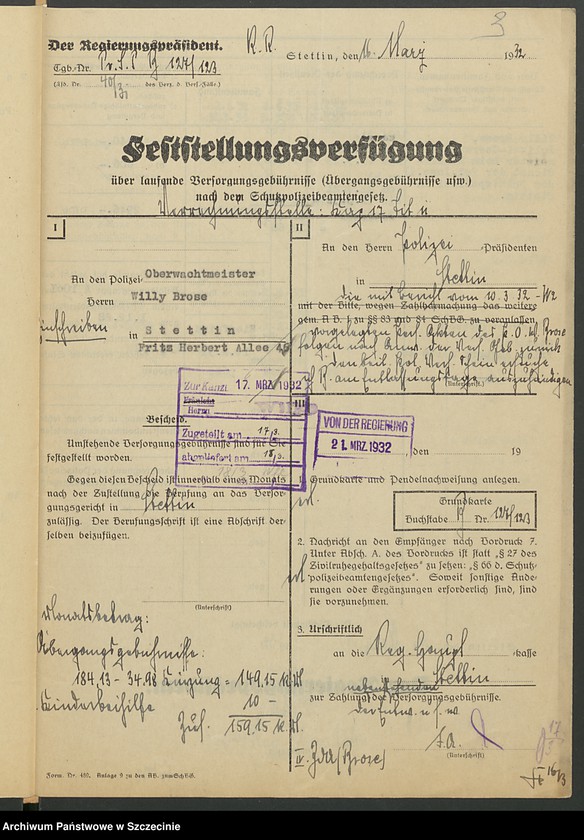 Der Regierungspräsident.
R. R.
Stettin, den 16. März 1932
Tgb.-Nr. Pr. S. P B 127/123
(Lfd. Nr. 40/31 des Verz. d. Vers.-Fälle.)
Feststellungsverfügung
über laufende Versorgungsgebührnisse (Übergangsgebührnisse usw.)
nach dem Schutzpolizeibeamtengesetz.
Verrechnungsstelle: Kap 17 Tit
I
An den Polizei Oberwachtmeister
Herrn Willy Brose
Einschreiben
in Stettin
Fritz Herbert Allee 48
Zur Kanzl 17. MRZ. 1932
Fräulein
Herrn
Zugeteilt am 17/3.
abgeliefert am 18/3.
Bescheid.
Umstehende Versorgungsgebührnisse sind für Sie
festgestellt worden.
Gegen diesen Bescheid ist innerhalb eines Monats
nach der Zustellung die Berufung an das Versor-
gungsgericht in Stettin
zulässig. Der Berufungsschrift ist eine Abschrift der-
selben beizufügen.
(Unterschrift)
Monatsbetrag:
Übergangsgebührnisse:
184,13 - 34,98 Kürzung = 149,15 RM
Kinderbeihilfe 10 -
Zus. 159,15 RM
Form. Nr. 480. Anlage 9 zu den AB. zum SchBG.
II
An den Herrn Polizei-Präsidenten
in Stettin
die mit Bericht vom 10.3.32 - W2
mit der Bitte, wegen Zahlbarmachung das weitere
gem. A. B. 1 zu §§ 83 und 84 SchBG. zu veranlassen.
vorgelegten Pers. Akten des P. O. W. Brose
folgen nach der Vers. Geb. zurück
am Entlassungstage auszuhändigen
(Unterschrift)
III
VON DER REGIERUNG
21. MRZ. 1932
, den 19
1. Grundkarte und Pendelnachweisung anlegen.
Grundkarte
Buchstabe B Nr. 127/123
2. Nachricht an den Empfänger nach Vordruck 7.
Unter Absch. A. des Vordrucks ist statt „§ 27 des
Zivilruhegehaltsgesetzes" zu setzen: „§ 66 d. Schutz-
polizeibeamtengesetzes". Soweit sonstige Ände-
rungen oder Ergänzungen erforderlich sind, sind
sie vorzunehmen.
3. Urschriftlich
an die Reg. Haupt-kasse
Stettin
nebenstehenden
zur Zahlung der Versorgungsgebührnisse.
I. A.
(Unterschrift)
IV. ZdA (Brose)
17/3
16/3
Archiwum Państwowe w Szczecinie